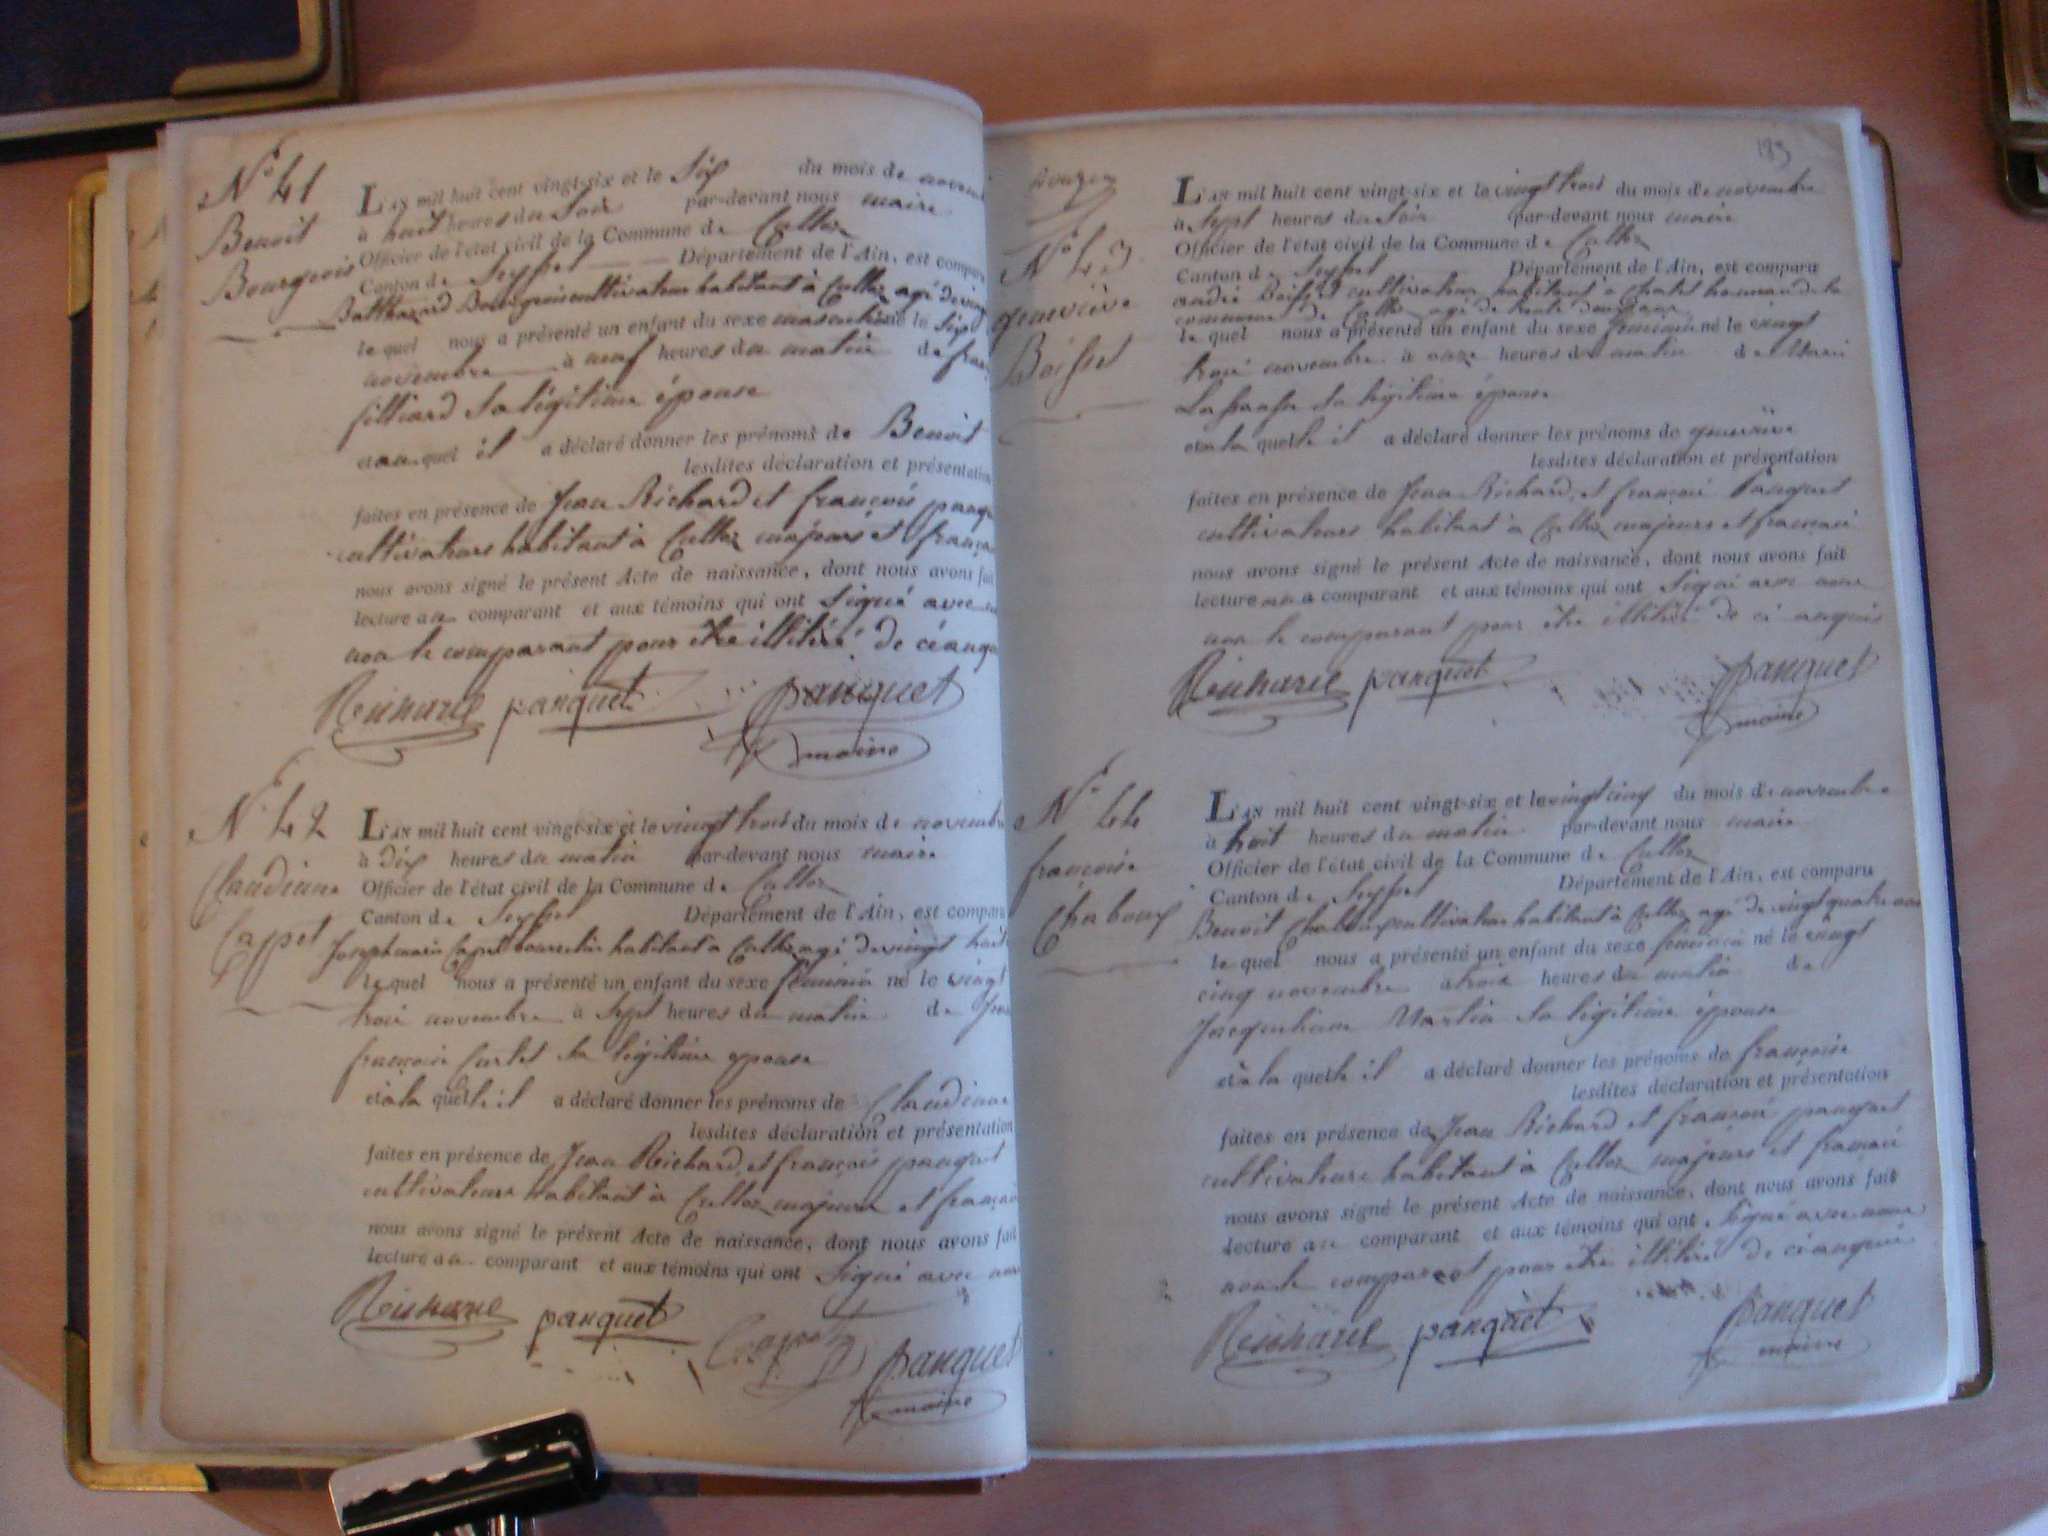 N° 41
Benoit
Bourgeois
L'AN mil huit cent vingt-six et le Six du mois de
à huit heures du Soir par-devant nous maire
Officier de l'état civil de la Commune de Culloz
Canton de Seyssel Département de l'Ain, est comparu
Balthazard Bourgeois cultivateur habitant à Culloz agé de
le quel nous a présenté un enfant du sexe masculin né le Six
novembre à neuf heures du matin de
filliard Sa légitime épouse
et au quel il a déclaré donner les prénoms de Benoit
lesdites déclaration et présentation
faites en présence de Jean Richard et françois
cultivateurs habitant à Culloz majeurs et
nous avons signé le présent Acte de naissance, dont nous avons fait
lecture au comparant et aux témoins qui ont Signé avec
non le comparant pour être illitéré de ce
Richard panquet panquet
maire
N° 42
Claudine
Cappet
L'AN mil huit cent vingt-six et le vingt trois du mois de novembre
à dix heures du matin par-devant nous maire
Officier de l'état civil de la Commune de Culloz
Canton de Seyssel Département de l'Ain, est comparu
habitant à Culloz agé de vingt huit
le quel nous a présenté un enfant du sexe féminin né le vingt
trois novembre à Sept heures du matin de
françoise Curtet Sa légitime épouse
et à la quelle il a déclaré donner les prénoms de Claudine
lesdites déclaration et présentation
faites en présence de Jean Richard et françois panquet
cultivateurs habitant à Culloz majeurs et
nous avons signé le présent Acte de naissance, dont nous avons fait
lecture au comparant et aux témoins qui ont Signé avec nous
Richard panquet
panquet
maire
183
N° 43
genevieve
Boisset
L'AN mil huit cent vingt-six et le vingt trois du mois de novembre
à Sept heures du Soir par-devant nous maire
Officier de l'état civil de la Commune de Culloz
Canton de Seyssel Département de l'Ain, est comparu
andré Boisset cultivateur habitant à de la
commune de Culloz agé de trente
le quel nous a présenté un enfant du sexe féminin né le vingt
trois novembre à onze heures du matin de Marie
Sa légitime épouse
et à la quelle il a déclaré donner les prénoms de genevieve
lesdites déclaration et présentation
faites en présence de Jean Richard et françois Panquet
cultivateurs habitant à Culloz majeurs et français
nous avons signé le présent Acte de naissance, dont nous avons fait
lecture au comparant et aux témoins qui ont Signé avec nous
non le comparant pour être illitéré de ce
Richard panquet panquet
maire
N° 44
françoise
Chaboux
L'AN mil huit cent vingt-six et le vingt cinq du mois de novembre
à huit heures du matin par-devant nous maire
Officier de l'état civil de la Commune de Culloz
Canton de Seyssel Département de l'Ain, est comparu
Benoit Chaboux cultivateur habitant à Culloz agé de vingt quatre ans
le quel nous a présenté un enfant du sexe féminin né le vingt
cinq novembre à trois heures du matin de
Jacqueline Martin Sa légitime épouse
et à la quelle il a déclaré donner les prénoms de françoise
lesdites déclaration et présentation
faites en présence de Jean Richard et françois panquet
cultivateurs habitant à Culloz majeurs et français
nous avons signé le présent Acte de naissance, dont nous avons fait
lecture au comparant et aux témoins qui ont Signé avec nous
non le comparant pour être illitéré de ce
Richard panquet panquet
maire